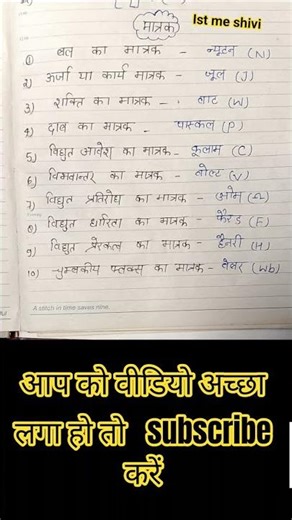 Ist me shivi
मात्रक
① बल का मात्रक - न्यूटन (N)
2) ऊर्जा या कार्य मात्रक - जूल (J)
3) शक्ति का मात्रक - वाट (W)
4) दाब का मात्रक - पास्कल (P)
5) विद्युत आवेश का मात्रक - कूलाम (C)
6) विभवान्तर का मात्रक - वोल्ट (V)
7) विद्युत प्रतिरोध का मात्रक - ओम (Ω)
8) विद्युत धारिता का मात्रक - फैरड (F)
9) विद्युत प्रेरकत्व का मात्रक - हैनरी (H)
10) चुम्बकीय फ्लक्स का मात्रक - वेबर (Wb)
A stitch in time saves nine.
आप को वीडियो अच्छा
लगा हो तो subscribe
करें